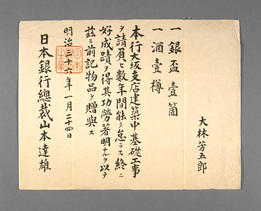 大林芳五郎
一銀盃壹箇
一酒壹樽
本行大坂支店建築中基礎工事
ヲ請負ヒ數年間能ク怠ラス終ニ
好成蹟ヲ得其功勞著明ナルヲ以テ
玆ニ前記物品ヲ贈與ス
明治三十六年一月二十四日
日本銀行總裁山本達雄